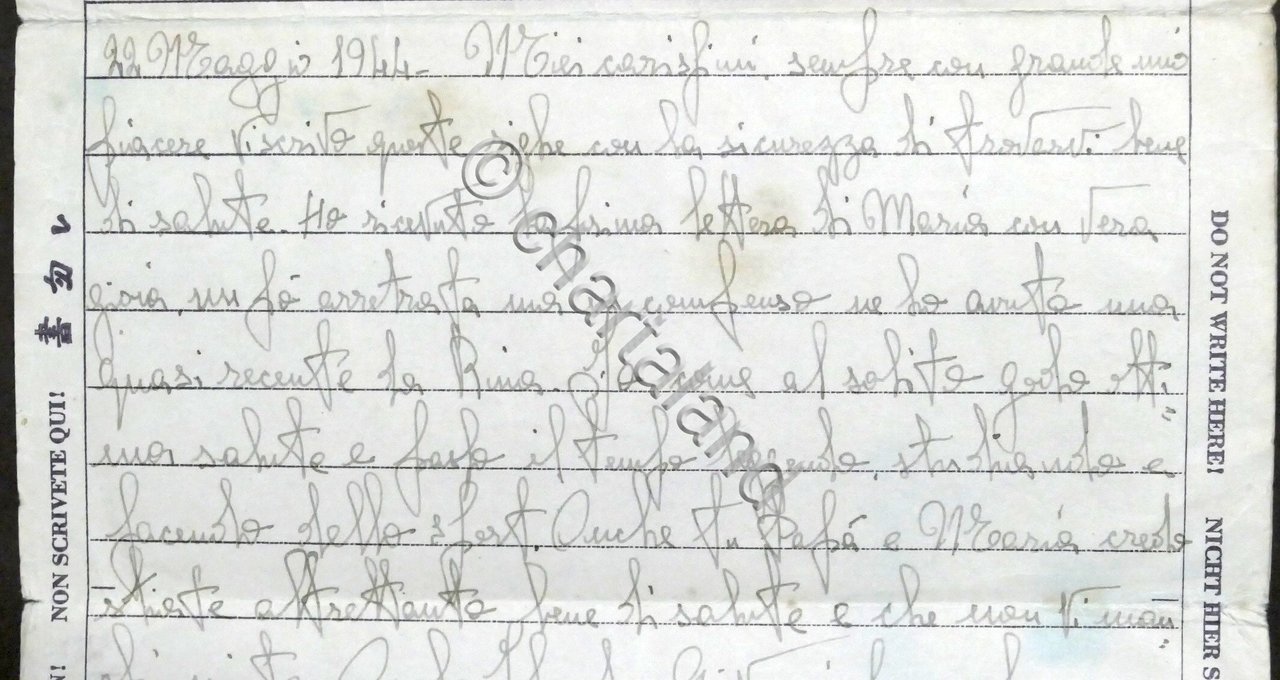 22 Maggio 1944 - Miei carissimi, sempre con grande mio
piacere vi scrivo queste righe con la sicurezza di trovarvi bene
di salute. Ho ricevuto la prima lettera di Maria con vera
gioia, un pó arretrata ma in compenso ne ho avuta una
quasi recente da Rina. Io come al solito godo otti
ma salute e passo il tempo leggendo, studiando e
facendo dello sport. Anche tu Papá e Maria credo
stiate altrettanto bene di salute e che non vi man
DO NOT WRITE HERE!
NICHT HIER S
NON SCRIVETE QUI!
N!
書勿レ
© chartaland